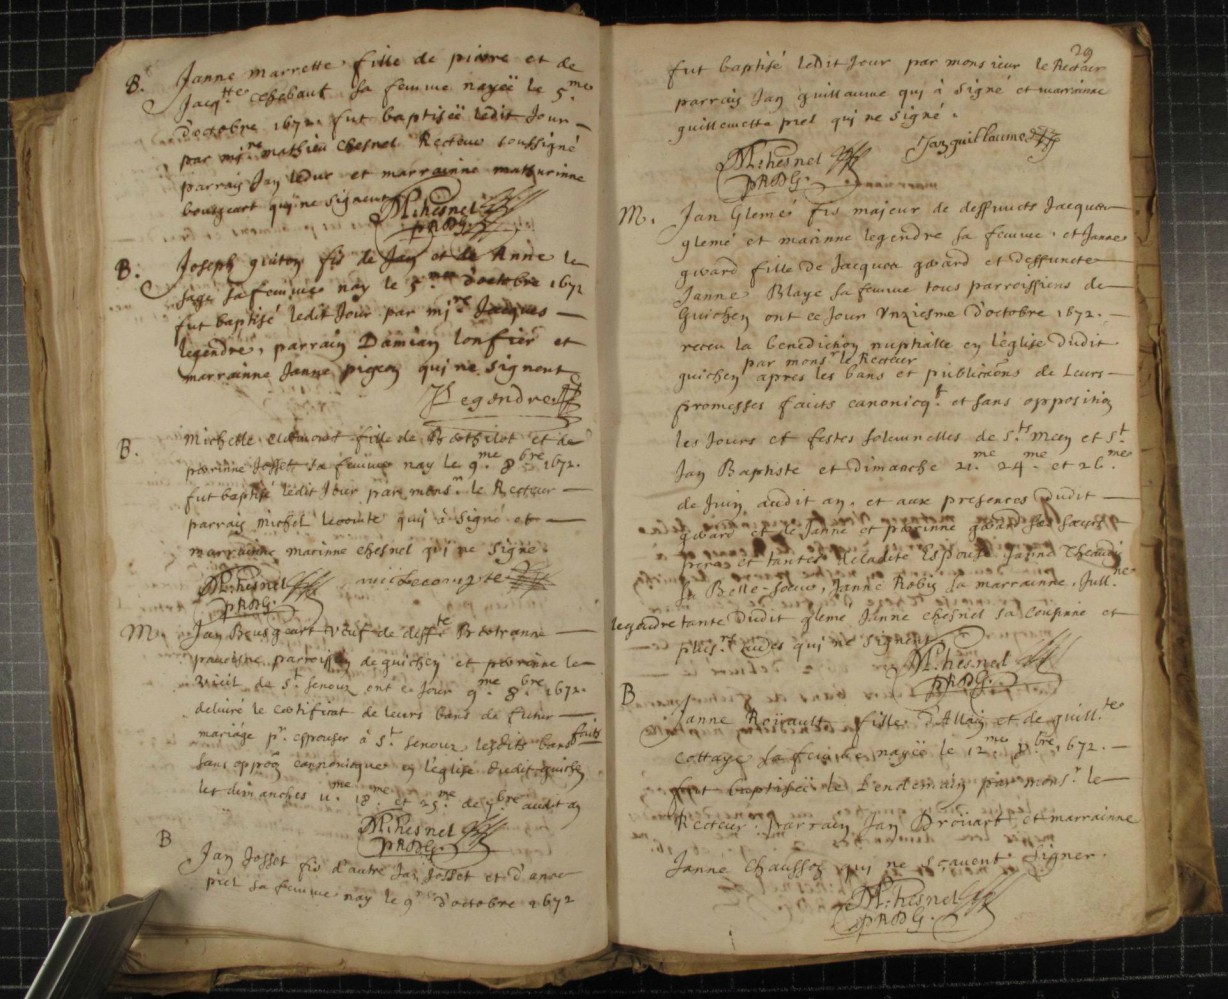 B. Janne marrette fille de pierre et de
Jacq.tte chebaut sa femme nayëe le 5.me
d'octobre 1672. fut baptisëe ledit Jour
par m.re mathieu chesnel Recteur soussigné
parrain Jan leduc et marrainne mathurinne
bougeart qui ne signent
M:chesnel
pRDG.
B. Joseph guiton fis de Jan et de Anne le
sage sa femme nay le 5.me d'octobre 1672
fut baptisé ledit Jour par m.re Jacques
legendre, parrain Damian lonfier et
marrainne Janne pigeon qui ne signent
J Legendre
B. Michelle fille de et de
perrinne Josset sa femme nay le 9.me 8.bre 1672.
fut baptisé ledit Jour par mons.r le Recteur
parrain michel lecointe qui à signé et
marrainne marinne chesnel qui ne signe.
M:chesnel
pRDG.
M. Jan Bougeart veuf de deff.te
parroiss. de guichen et perrinne le
vieil de S.t senoux ont ce Jour 9.me 8.bre 1672.
deluiré le certificat de leurs bans de futur
mariage p.r espouser à S.t senoux lesdits bans faits
sans oppôn cannonique en l'église dudit guichen
les dimanches 11.me 18.me et 25.me de 7.bre audit an
M:chesnel
pRDG.
B Jan Josset fis d'autre Jan Josset et d'anne
piel sa femme nay le 9.me d'octobre 1672
29
fut baptisé ledit Jour par monsieur le Recteur
parrain Jan guillaume qui à signé et marrainne
guillemette piel qui ne signe.
M:chesnel
pRDG.
Jan guillaume
M. Jan Glemé fis majeur de deffuncts Jacques
glemé et marinne legendre sa femme. et Janne
gicard fille de Jacques gicard et deffuncte
Janne Blaye sa femme tous parroissiens de
Guichen ont ce Jour vnziesme d'octobre 1672.
receu la benediction nuptialle en l'église dudit
par mons.r le Recteur
guichen apres les bans et publicaõns de leurs
promesses faits canonicq.t et sans opposition
les Jours et festes solemnelles de S.t Meen et S.t
Jan Baptiste et dimanche 21.me 24.me et 26.me
de Juin audit an. et aux presences dudit
gicard et de Janne et perrinne gicard ses sœurs
pere et tantes de ladite Espouse Janne
sa Belle-sœur, Janne Robin sa marrainne, Jull.ne
legendre tante dudit glemé Janne chesnel sa cousinne et
plus.rs autres qui ne signent
M:chesnel
pRDG.
B Janne Reirault fille d'Allain et de guill.tte
Cottaye sa femme nayëe le 12.me 8.bre 1672.
fut baptisëe le l'endemain par mons.r le
Recteur. parrain Jan Droüart et marrainne
Janne Chaussee qui ne sçauent signer.
M:chesnel
pRDG.